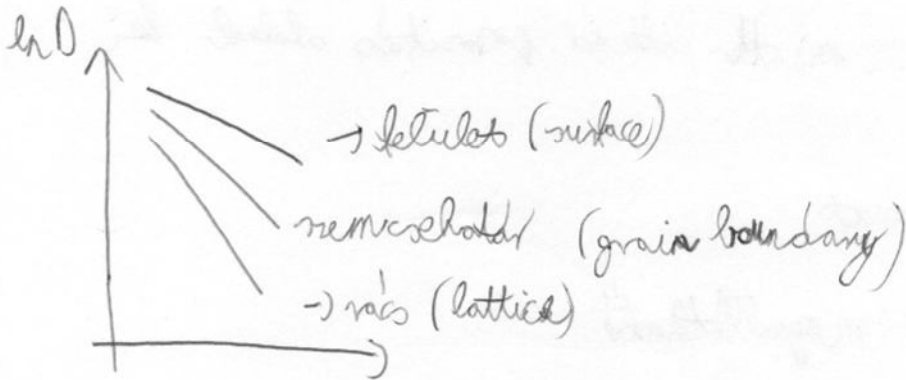 ln D
→ felület (surface)
szemcsehatár (grain boundary)
→ rács (lattice)